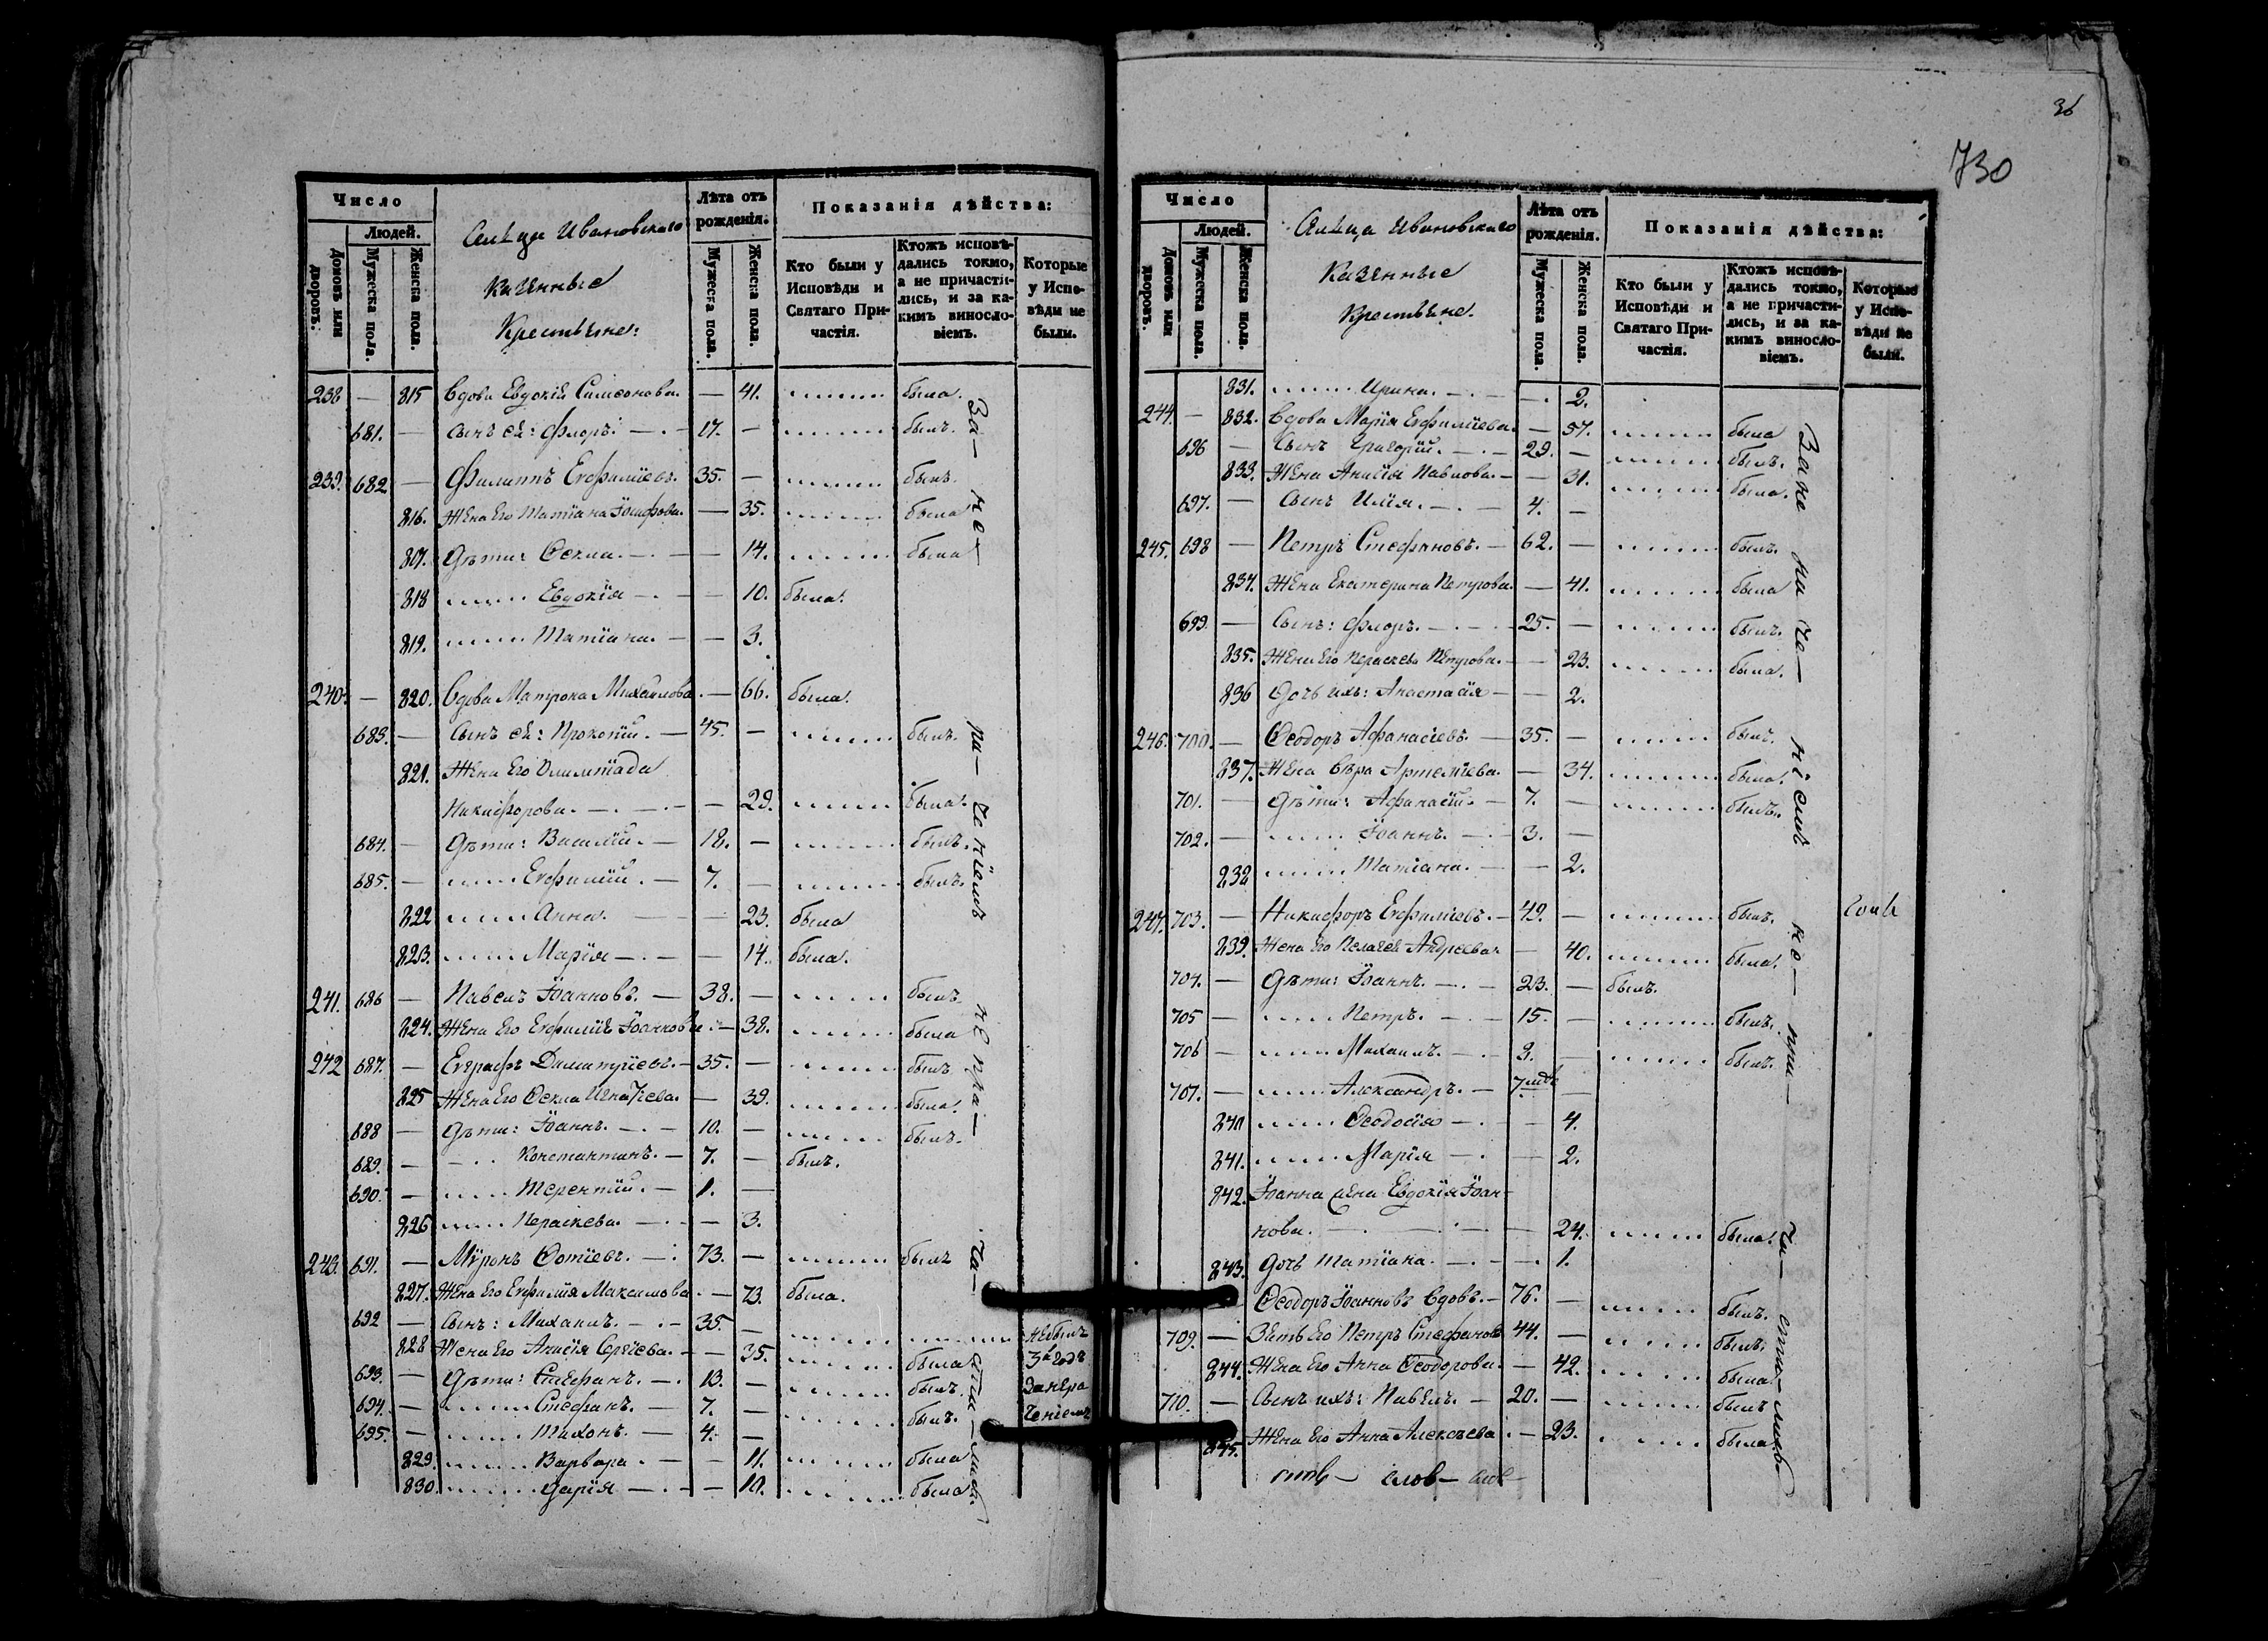 36
730
Число
Сельца Ивановскаго
Лѣта отъ рожденія.
Показанія дѣйства:
Людей.
Домовъ или дворовъ.
Мужеска пола.
Женска пола.
Казенные
Крестьяне:
Мужеска пола.
Женска пола.
Кто были у Исповѣди и Святаго Причастія.
Ктожъ исповѣдались токмо, а не причастились, и за какимъ винословіемъ.
Которые у Исповѣди не были.
238 — 815 Вдова Евдокія Симеонова. — 41. была.
681. — Сынъ ея: Флоръ. — 17. — былъ.
239. 682 — Филиппъ Евфиміевъ. 35. — былъ.
816. Жена Его Татіана Іосифова. — 35. была
817. Дѣти: Ѳекла. — 14. была
818 Евдокія — 10. была.
819. Татіана. — 3.
240. — 820. Вдова Матрона Михайлова. — 66. была.
683. — Сынъ ея: Прокопій. — 45. — былъ.
821. Жена Его Олимпіада
Никифорова. — 29. была.
684. — Дѣти: Василій. — 18. — былъ.
685. — Евфимій. — 7. — былъ.
822 Анна. — 23. была
823. Марія — 14. была.
241. 686 — Павелъ Іоанновъ. — 38. — былъ.
824. Жена Его Евфимія Іоаннова. — 38. была
242 687. — Евграфъ Димитріевъ. — 35. — былъ
825 Жена Его Ѳекла Игнатіева. — 39. была.
688 — Дѣти: Іоаннъ. — 10. — былъ.
689. — Константинъ. — 7. — былъ.
690. — Терентій. — 1. —
826 Параскева. — 3.
243. 691. — Муронъ Фотіевъ. — 73. — былъ
827. Жена Его Евфимія Максимова. — 73. была.
692 — Сынъ: Михаилъ. — 35. — небылъ
828 Жена Его Анисія Сергіева. — 35. была 3й годъ
693. — Дѣти: Стефанъ. — 13. — былъ. Занера
694. — Стефанъ. — 7. — былъ. ченіемъ
695. — Тихонъ. — 4. —
829. Варвара. — 11. была
830. Дарія — 10. была
За не ра че ніемъ не при ча сти лись
Число
Сельца Ивановскаго
Лѣта отъ рожденія.
Показанія дѣйства:
Людей.
Домовъ или дворовъ.
Мужеска пола.
Женска пола.
Казенные
Крестьяне.
Мужеска пола.
Женска пола.
Кто были у Исповѣди и Святаго Причастія.
Ктожъ исповѣдались токмо, а не причастились, и за какимъ винословіемъ.
Которые у Исповѣди не были.
831. Ирина. — 2.
244. — 832. Вдова Марія Евфиміева. — 57. была
696 — Сынъ Григорій. — 29. — былъ.
833. Жена Анисія Павлова. — 31. была.
697. — Сынъ Илія. — 4. —
245. 698 — Петръ Стефановъ. — 62. — былъ.
834. Жена Екатерина Петрова. — 41. была
699. — Сынъ: Флоръ. — 25. — былъ.
835. Жена Его Параскева Петрова. — 23. была.
836 Дочь ихъ: Анастасія — 2.
246. 700. — Ѳеодоръ Афанасіевъ. — 35. — былъ.
837. Жена Вѣра Артеміева. — 34. была.
701. — Дѣти: Афанасій. — 7. — былъ.
702. — Іоаннъ. — 3. —
838 Татіана. — 2.
247. 703. — Никифоръ Евфиміевъ. — 49. — былъ.
839. Жена Его Пелагея Андреева — 40. была.
704. — Дѣти: Іоаннъ. — 23. — былъ.
705 — Петръ. — 15. — былъ.
706 — Михаилъ. — 8. — былъ.
707. — Александръ. — 7. —
840 Ѳеодосія — 4.
841. Марія — 2.
842. Іоанна жена Евдокія Іоан-
нова. — 24. была.
843. Дочь Татіана. — 1.
Ѳеодоръ Іоанновъ Вдовъ. — 76. — былъ.
709. — Зять Его Петръ Стефановъ 44. — былъ.
844. Жена Его Анна Ѳеодорова. — 42. была.
710. — Сынъ ихъ: Павелъ. — 20. — былъ
845. Жена Его Анна Алексѣева. — 23. была
За не ра че ніемъ не при ча сти лись